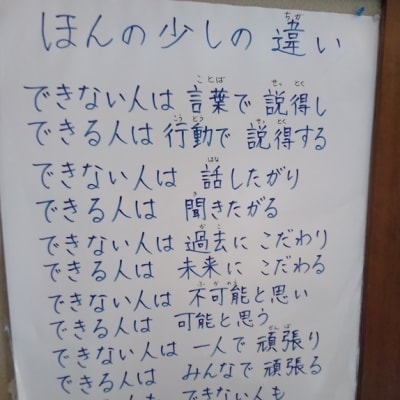 ほんの少しの違い
できない人は言葉で説得し
できる人は行動で説得する
できない人は話したがり
できる人は聞きたがる
できない人は過去にこだわり
できる人は未来にこだわる
できない人は不可能と思い
できる人は可能と思う
できない人は一人で頑張り
できる人はみんなで頑張る
できない人も